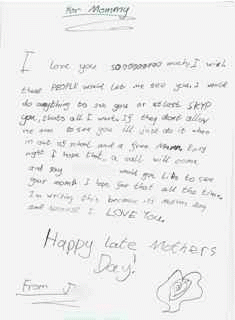 For Mommy
I love you sooooooooo much, I wish
these PEOPLE would let me see you. I would
do anything to see you or atleast SKYP
you, thats all I want. If they dont allow
me to see you ill just do it when
im out of school and a free
right I hope that a call will come
and say would you like to see
your mom. I hope for that all the time.
I'm writing this because its mothers day
and I LOVE YOU.
Happy late Mothers
Day!
From J